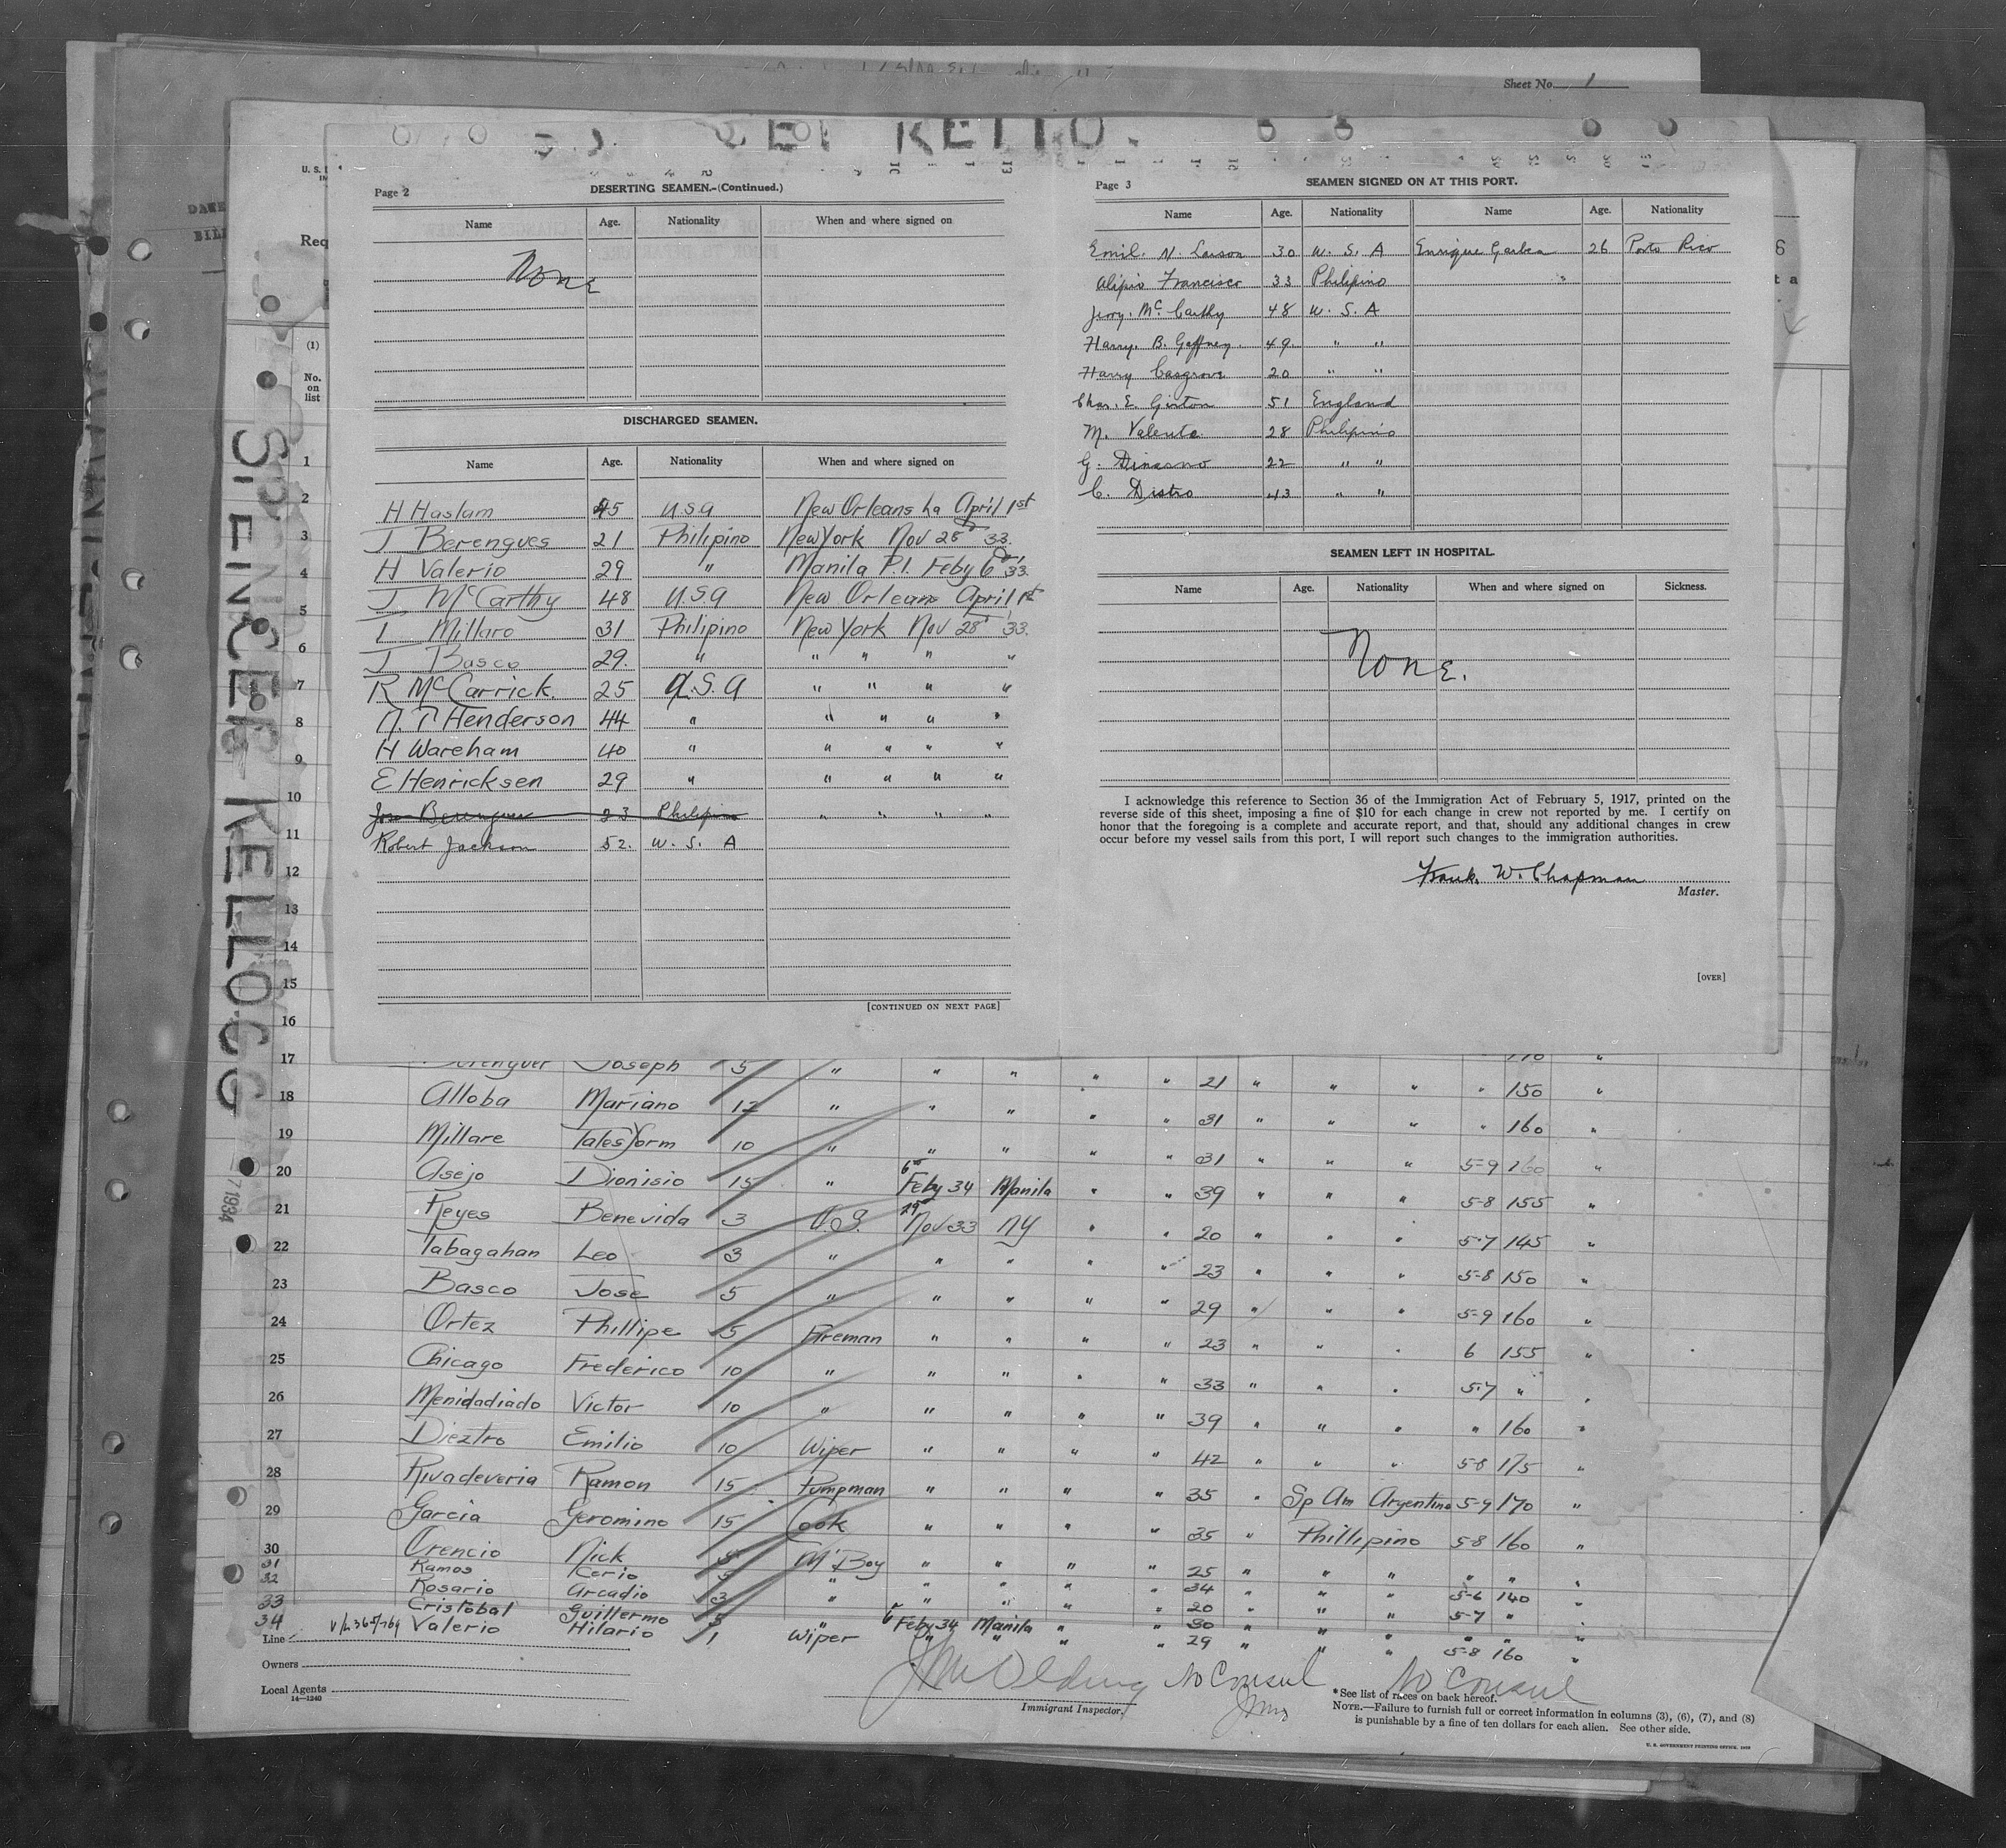 Sheet No. 1
Page 2
DESERTING SEAMEN.-(Continued.)
Name Age. Nationality When and where signed on
None
DISCHARGED SEAMEN.
Name Age. Nationality When and where signed on
H Haslam 45 USA New Orleans La April 1st
J Berengues 21 Philipino New York Nov 28 33.
H Valerio 29 " Manila P.I. Feby 6 33.
J McCarthy 48 USA New Orleans April 1st
T Millaro 31 Philipino New York Nov 28 33.
J Basco 29. " " " " "
R McCarrick. 25 U.S.A " " " "
A. T Henderson 44 " " " " "
H Wareham 40 " " " " "
E Henricksen 29 " " " " "
Jose Berengues 23 Philipino " " " "
Robert Jackson 52. U. S. A
[CONTINUED ON NEXT PAGE]
Page 3
SEAMEN SIGNED ON AT THIS PORT.
Name Age. Nationality Name Age. Nationality
Emil. N. Larson 30 U. S. A Enrique 26 Porto Rico
Alipio Francisco 33 Philipino
Jerry. Mc. Carthy 48 U. S. A
Harry. B. Gaffney. 49. " "
Harry Casgrove 20 " "
Chas. E. Girton 51 England
M. Valente 28 Philipino
G. 22 " "
C. Distro 43 " "
SEAMEN LEFT IN HOSPITAL.
Name Age. Nationality When and where signed on Sickness.
None.
I acknowledge this reference to Section 36 of the Immigration Act of February 5, 1917, printed on the
reverse side of this sheet, imposing a fine of $10 for each change in crew not reported by me. I certify on
honor that the foregoing is a complete and accurate report, and that, should any additional changes in crew
occur before my vessel sails from this port, I will report such changes to the immigration authorities.
Frank. W. Chapman
Master.
[OVER]
SPENCER KELLOGG
(1)
No.
on
list
1
2
3
4
5
6
7
8
9
10
11
12
13
14
15
16
17 Berenguer Joseph 5 " " " " " 21 " " " " 150 "
18 Alloba Mariano 12 " " " " " 31 " " " " 160 "
19 Millare Talesform 10 " " " " " 31 " " " 5-9 160 "
20 Asejo Dionisio 15 " 6th Feby 34 Manila " " 39 " " " 5-8 155 "
21 Reyes Benevida 3 O.S. 29 Nov 33 NY " " 20 " " " 5-7 145 "
22 Tabagahan Leo 3 " " " " " 23 " " " 5-8 150 "
23 Basco Jose 5 " " " " " 29 " " " 5-9 160 "
24 Ortez Phillipe 5 Fireman " " " " 23 " " " 6 155 "
25 Chicago Frederico 10 " " " " " 33 " " " 5-7 " "
26 Menidadiado Victor 10 " " " " " 39 " " " " 160 "
27 Dieztro Emilio 10 Wiper " " " " 42 " " " 5-8 175 "
28 Rivadeveria Ramon 15 Pumpman " " " " 35 " Sp Am Argentina 5-9 170 "
29 Garcia Geromino 15 Cook " " " " 35 " Phillipino 5-8 160 "
30 Orencio Nick 5 M'Boy " " " " 25 " " " " " "
31 Ramos Cerio 5 " " " " " 34 " " " 5-6 140 "
32 Rosario Arcadio 3 " " " " " 20 " " " 5-7 " "
33 Cristobal Guillermo 5 " 6 Feby 34 Manila " " 30 " " " " " "
34 Valerio Hilario 1 Wiper " " " " 29 " " " 5-8 160 "
Line
Owners
Local Agents
14—1240
No Consul
No Consul
Immigrant Inspector.
*See list of races on back hereof.
NOTE.—Failure to furnish full or correct information in columns (3), (6), (7), and (8)
is punishable by a fine of ten dollars for each alien. See other side.